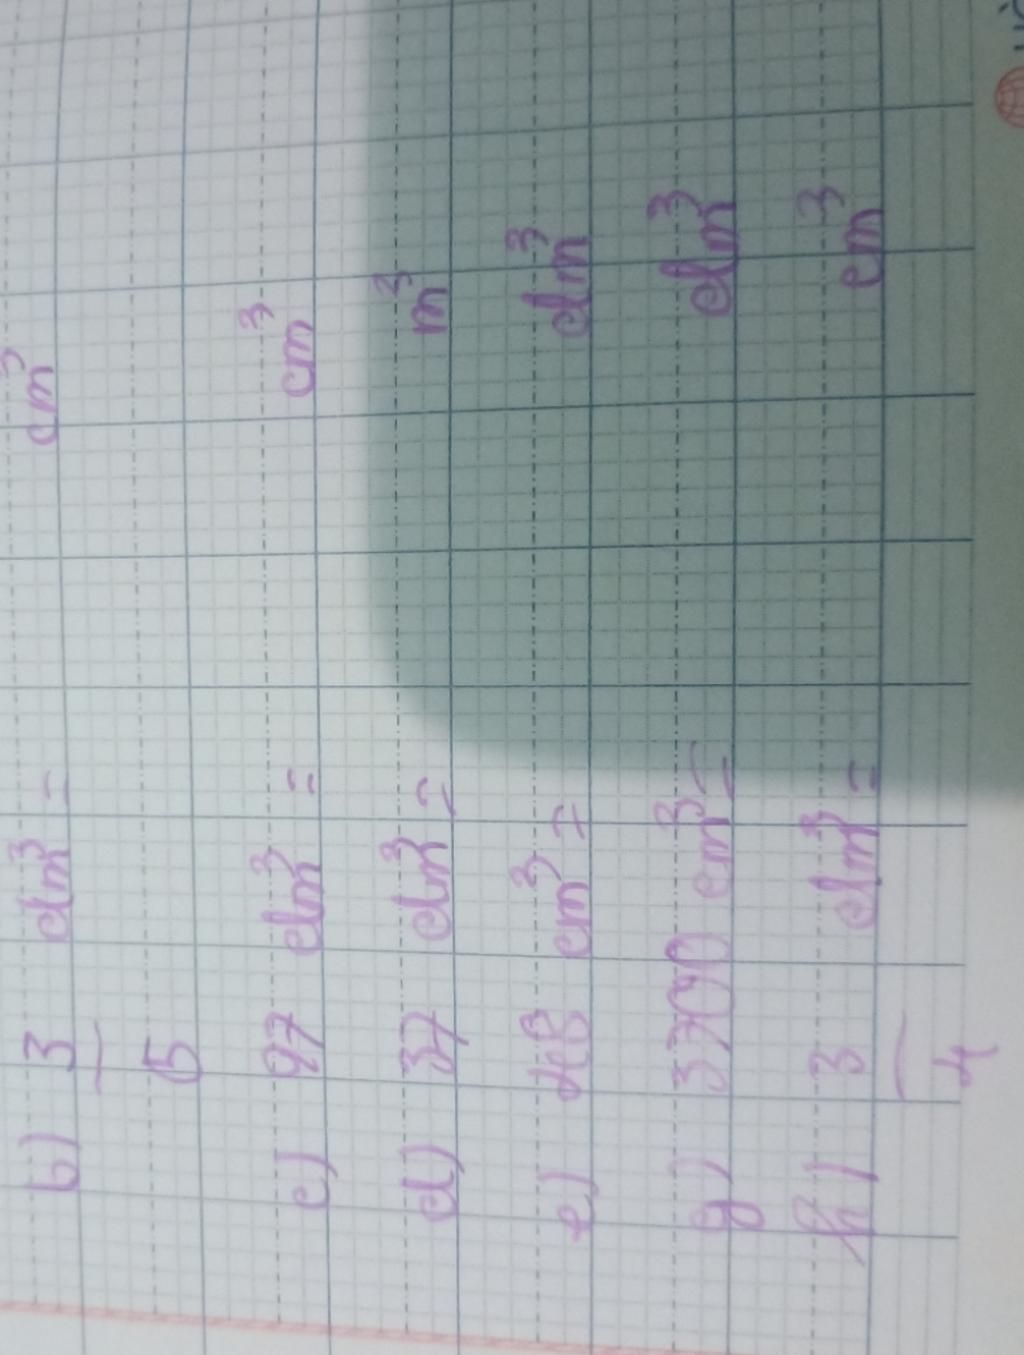 b) 3/5 dm³ = cm³
c) 97 dm³ = cm³
d) 37 dm³ = m³
e) 48 cm³ = dm³
g) 3700 cm³ = dm³
h) 3/4 dm³ = cm³